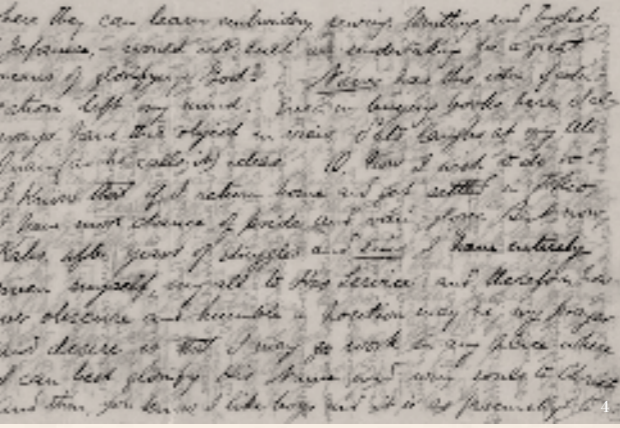 here they can learn embroidery, sewing, knitting and English
Japanese, - would not such an undertaking be a great
means of glorifying God? Never has this idea of edu-
cation left my mind. Even in buying books here, I al-
ways have this object in view. laughs at my
(as he calls it) ideas. O, how I wish to do it!
I know that if I return home and get settled in
I have most chance of pride and vain glory. But now
after years of struggles and I have entirely
given myself, my all to His Service; and therefore how
ever obscure and humble a position may be, my prayer
and desire is that I may go work in any place where
I can best glorify His Name, and win souls to Christ
and then, you know I like boys and it is as to
4